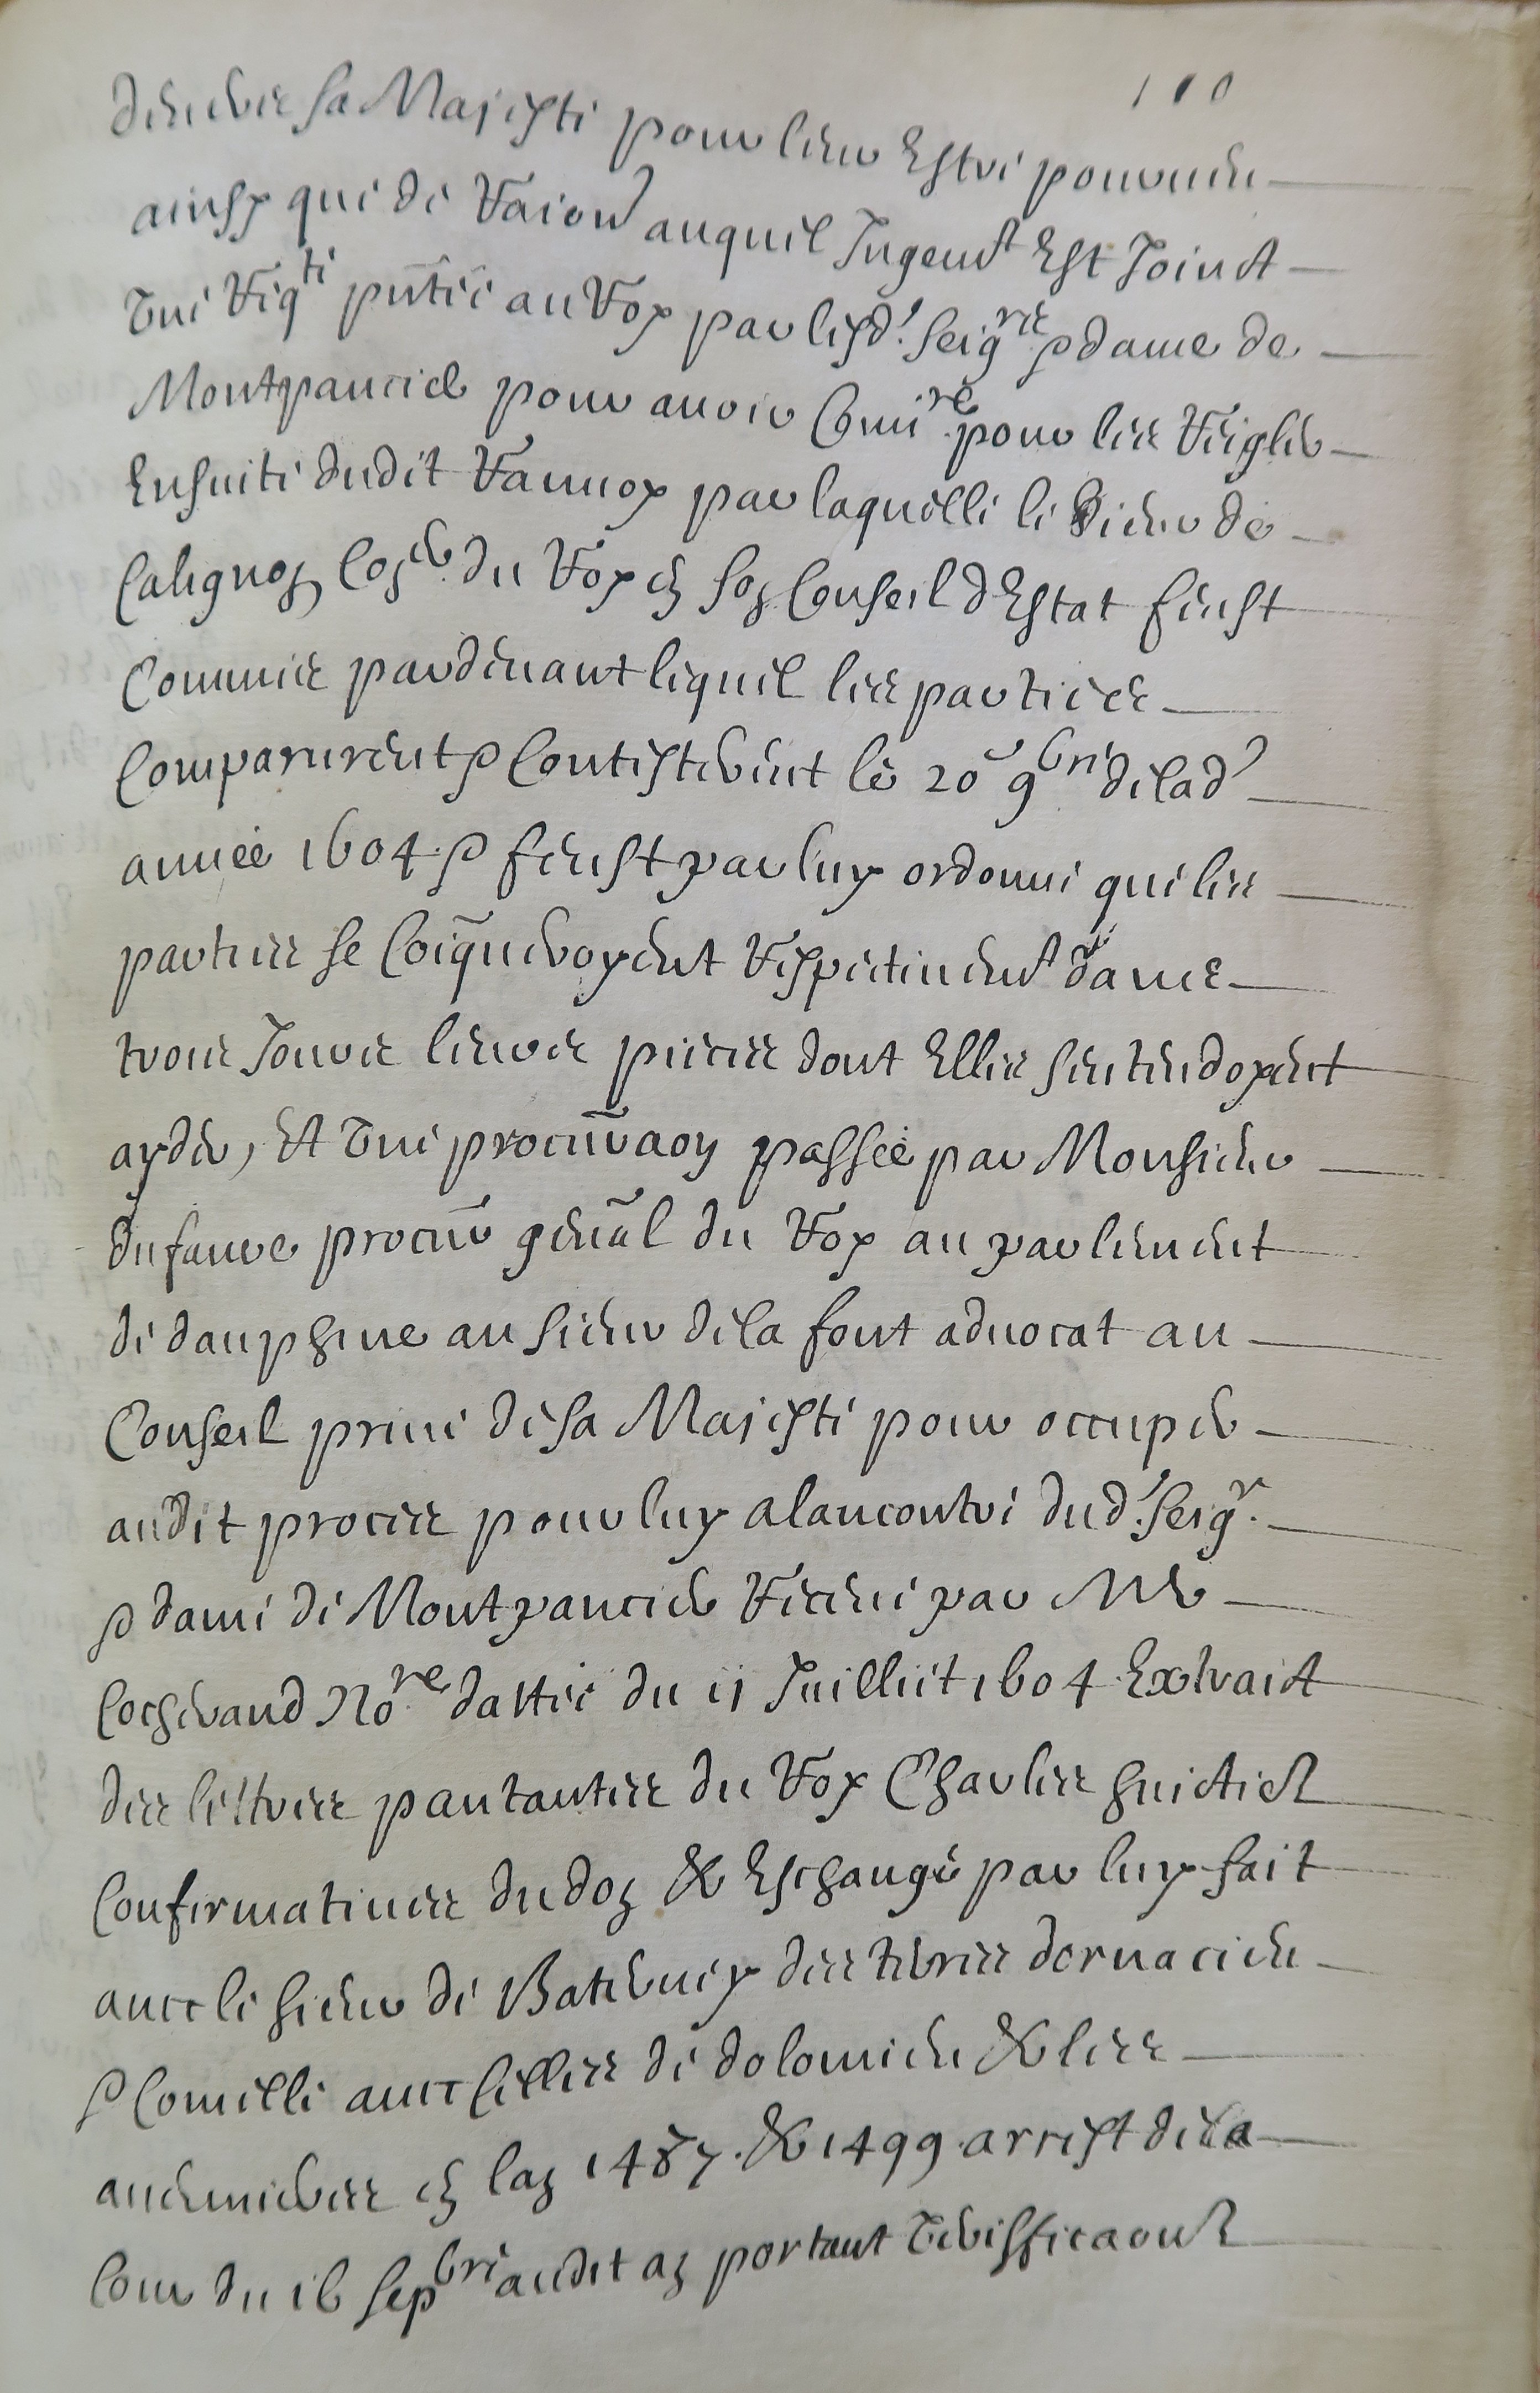 110
deuers sa Majesté pour leur Estre pourueu
ainsy que de Raison auquel Jugemt Est Joinct
Vne Reqte pntée au Roy par lesd. seigrs & dame de
Montpancier pour auoir Comire pour les Regler
Ensuite dudit Rannoy par laquelle le Sieur de
Calignon Coner du Roy en son Conseil d'Estat feust
Commis pardeuant lequel les parties
Comparurent & Contesterent le 20e 9bre delad
année 1604 & feust par luy ordonné que les
parties se Coiqueroyent Respectiuemt dans
trois Jours leurs pieces dont Elles sentendoyent
ayder, Et Vne procuraon passée par Monsieur
dufaure procur genal du Roy au parlement
de dauphine au sieur dela font aduocat au
Conseil priué de sa Majesté pour occuper
audit proces pour luy alancontre dud. seigr.
& dame de Montpancier Receue par Me
Cocheraud Nore dattée du 11 Juilliet 1604 Extraict
des lettres pantantes du Roy Charles huictie
Confirmatiues du don & Eschange par luy fait
auec le sieur de Baterney des terres dornacieu
& Comelle auec celles de dolomieu & les
auenieres en lan 1487. & 1499. arrest de la
Cour du 16 sepbre audit an portant Verifficaon